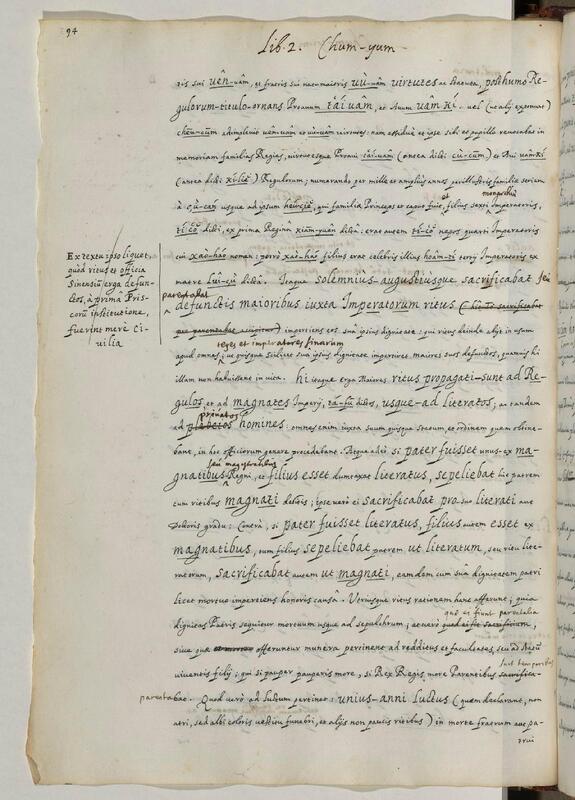 94
Lib. 2. Chum-yum
tris sui uên-uâm, et fratris sui natu maioris uù-uâm virtutes posthumo Re-
gulorum titulo ornans Proauum tái uâm, et Auum uâm kí. uel (ut alij exponunt)
cheu-cum adimpleuit uen-uam et uu-uam virtutes: nam assiduè et ipse sibi et populo renouabat in
memoriam familias Regias, virtutesque Proaui tái-uâm (antea dicti cù-cum) et Aui uâm-kí
(antea dicti kí-liĕ) Regulorum; numerando per mille et ampliùs annos perillustris familiæ seriem
à usque ad ipsum heu-cie, qui familiæ Princeps et caput fuit, et filius sexti monarchæ Imperatoris,
tí-co dicti, ex prima Regina dicta: erat autem tí-co nepos quarti Imperatoris
cui xao-hao nomen: porrò xao-hao filius erat celebris illius hoam-ti tertij Imperatoris ex
matre Lui-cu dicta. Itaque solemniùs augustiùsque sacrificabat seu
parentabat
defunctis maioribus iuxta Imperatorum ritus (hic to sacrificabat
pro parentabat accipitur) impertiens eos sua ipsius dignitate: qui ritus deinde abijt in usum
reges et imperatores sinarum
apud omnes; ut quisque scilicet sua ipsius dignitate impertiret maiores suos defunctos, quamuis hi
illam non habuissent in vita. hi itaque erga Maiores ritus propagati sunt ad Re-
gulos et ad magnates Imperij, tá-fu dictos, usque ad literatos, ac tandem
priuatos
ad plebeios homines: omnes enim iuxta suum quisque statum et ordinem quem obtine-
bant, in hoc officiorum genere procedebant. Atque adeò si pater fuisset unus ex ma-
seu magistratibus
gnatibus Regni, et filius esset dumtaxat literatus, sepeliebat hic patrem
cum ritibus magnati debitis; ipse verò ei sacrificabat pro suo literati aut
Doctoris gradu: Contrà, si pater fuisset literatus, filius autem esset ex
magnatibus, tum filius sepeliebat patrem ut literatum, seu ritu lite-
ratorum, sacrificabat autem ut magnati, eamdem cum sua dignitatem patri
licet mortuo impertiens honoris causâ. Utriusque ritus rationem hanc afferunt; quia
quo ei fiunt parentalia
dignitas Patris sequitur mortuum usque ad sepulchrum; at verò quod ei fit sacrificium,
siue quæ offeruntur munera pertinent ad redditus et facultates, seu ad statum
suis temporibus
viuentis filij; qui si pauper pauperis more, si Rex Regis more Parentibus sacrifica-
parenta bat. Quod verò ad luctum pertinet: unius anni luctus (quem declarant, non
atri, sed albi coloris vestitu funebri, et alijs non paucis ritibus) in morte fratrum aut pa-
trui
Ex textu ipso liquet,
quod ritus et officia
Sinensiũ erga defun-
ctos, à primâ Pris-
corũ institutione,
fuerint merè Ci-
uilia